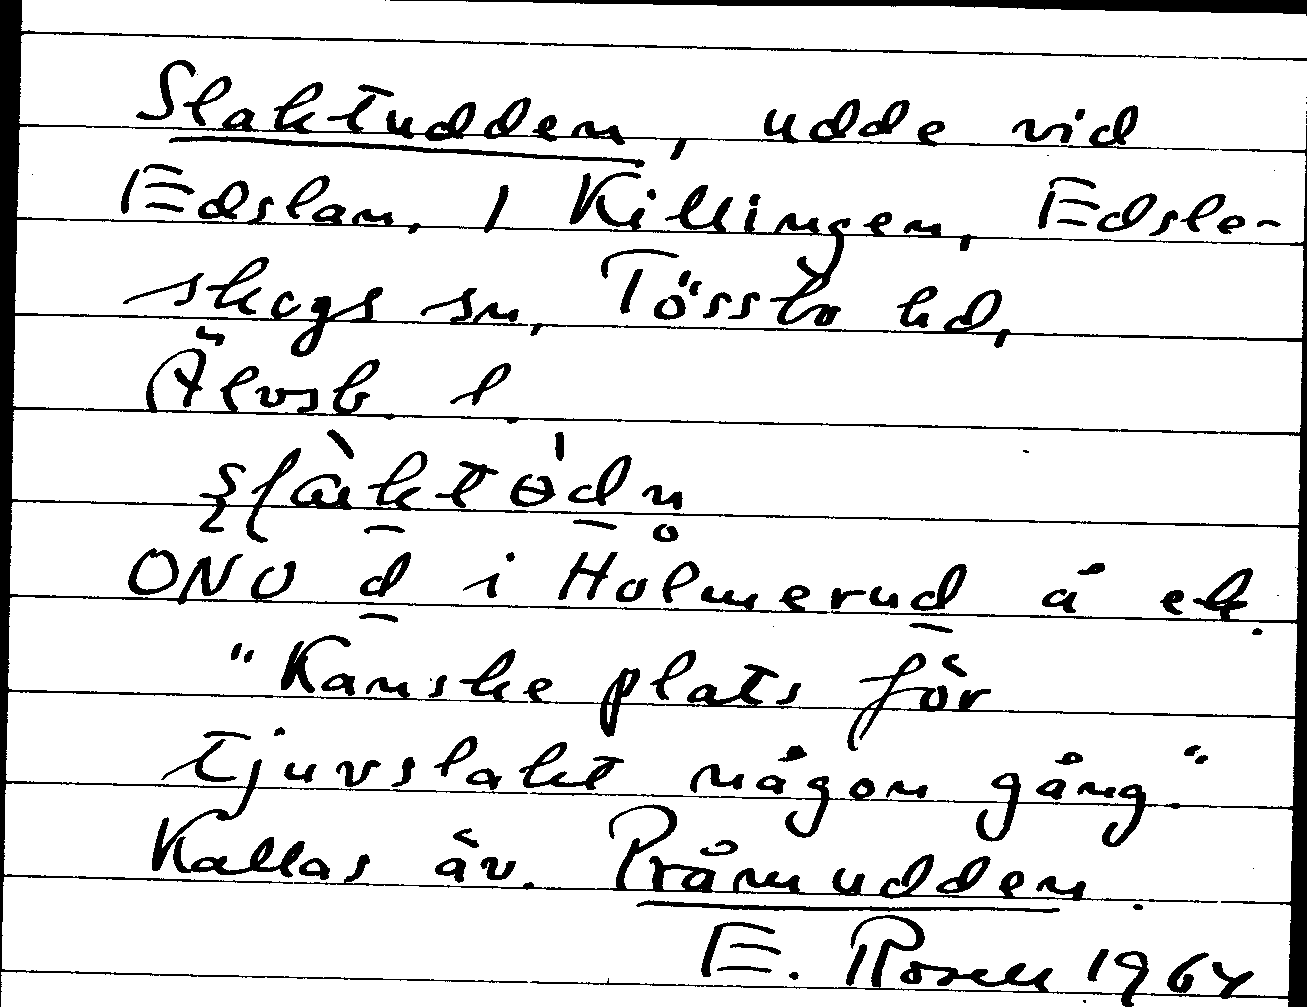 Slaktudden, udde vid
Edslan, 1 Killingen, Edsle-
skogs sn, Tössbo hd,
Älvsb. l.
ONO d i Holmerud å ek.
"Kanske plats för
tjuvslakt någon gång."
Kallas äv. Pråmudden.
E. Rosell 1964